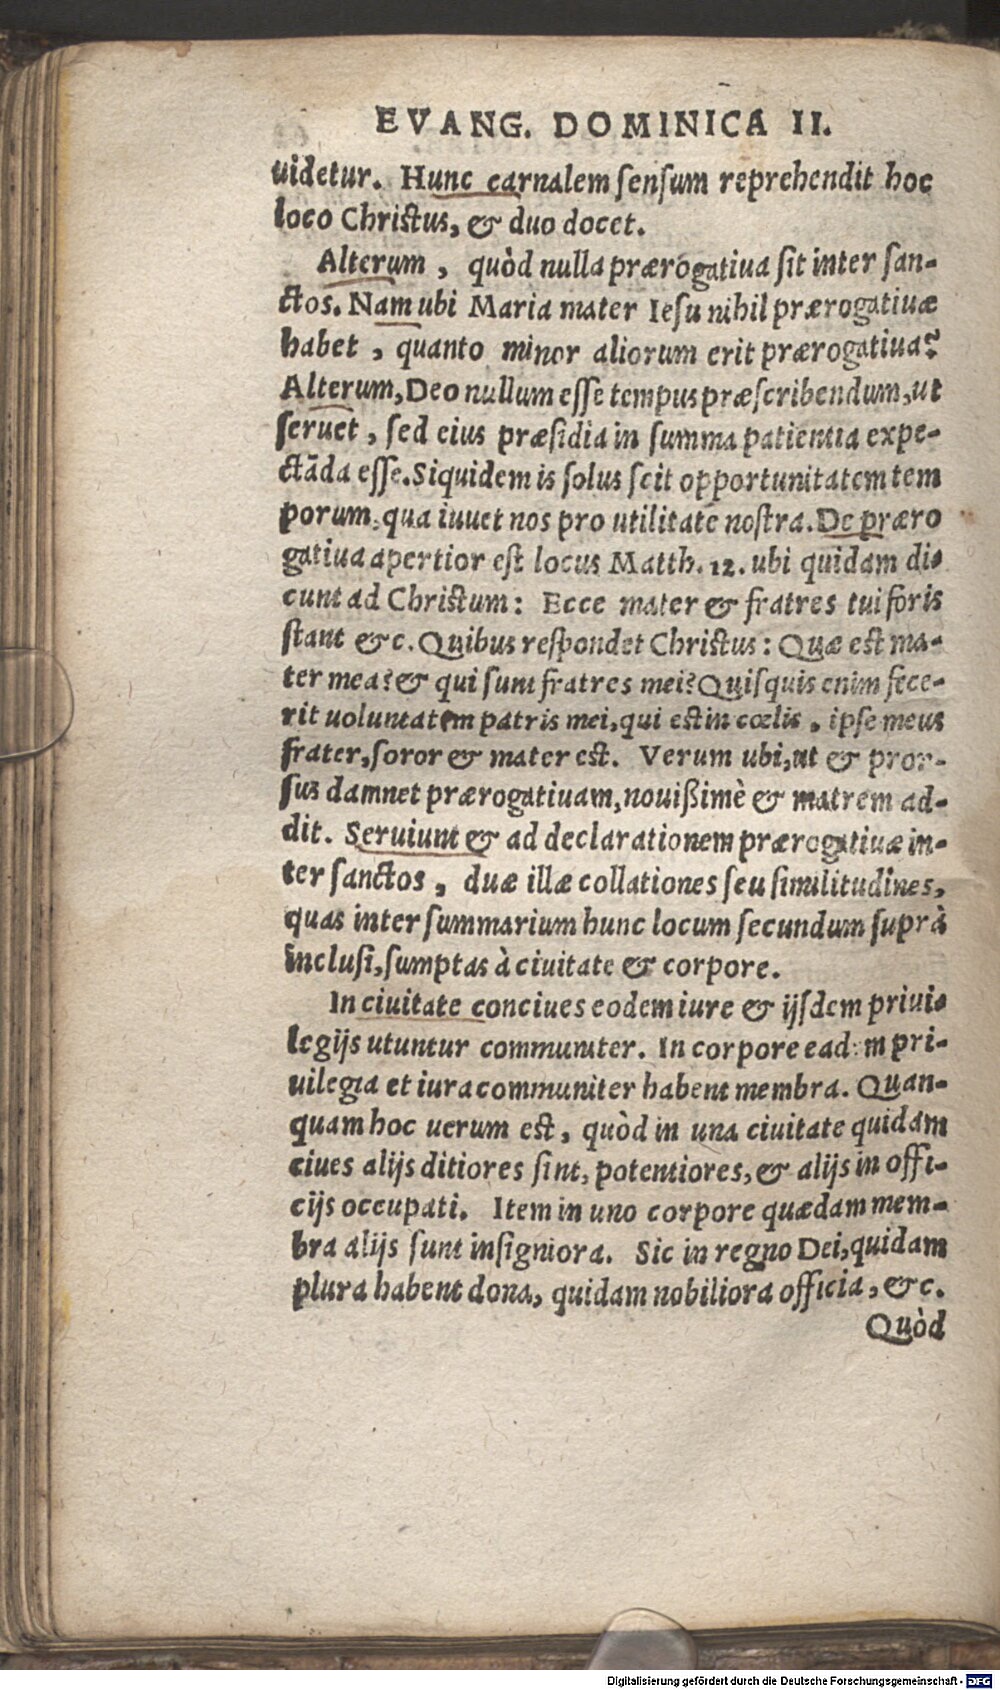 EVANG. DOMINICA II.
uidetur. Hunc carnalem sensum reprehendit hoc
loco Christus, & duo docet.
Alterum, quòd nulla prærogatiua sit inter san-
ctos. Nam ubi Maria mater Iesu nihil prærogatiuæ
habet, quanto minor aliorum erit prærogatiua?
Alterum, Deo nullum esse tempus præscribendum, ut
seruet, sed eius præsidia in summa patientia expe-
ctãda esse. Siquidem is solus scit opportunitatem tem
porum, qua iuuet nos pro utilitate nostra. De præro
gatiua apertior est locus Matth. 12. ubi quidam di-
cunt ad Christum: Ecce mater & fratres tui foris
stant &c. Quibus respondet Christus: Quæ est ma-
ter mea? & qui sunt fratres mei? Quisquis enim fece-
rit uoluntatem patris mei, qui est in cœlis, ipse meus
frater, soror & mater est. Verum ubi, ut & pror-
sus damnet prærogatiuam, nouißimè & matrem ad-
dit. Seruiunt & ad declarationem prærogatiuæ in-
ter sanctos, duæ illæ collationes seu similitudines,
quas inter summarium hunc locum secundum suprà
inclusi, sumptas à ciuitate & corpore.
In ciuitate conciues eodem iure & ijsdem priui-
legijs utuntur communiter. In corpore eadem pri-
uilegia et iura communiter habent membra. Quan-
quam hoc uerum est, quòd in una ciuitate quidam
ciues alijs ditiores sint, potentiores, & alijs in offi-
cijs occupati. Item in uno corpore quædam mem-
bra alijs sunt insigniora. Sic in regno Dei, quidam
plura habent dona, quidam nobiliora officia, &c.
Quòd
Digitalisierung gefördert durch die Deutsche Forschungsgemeinschaft - DFG